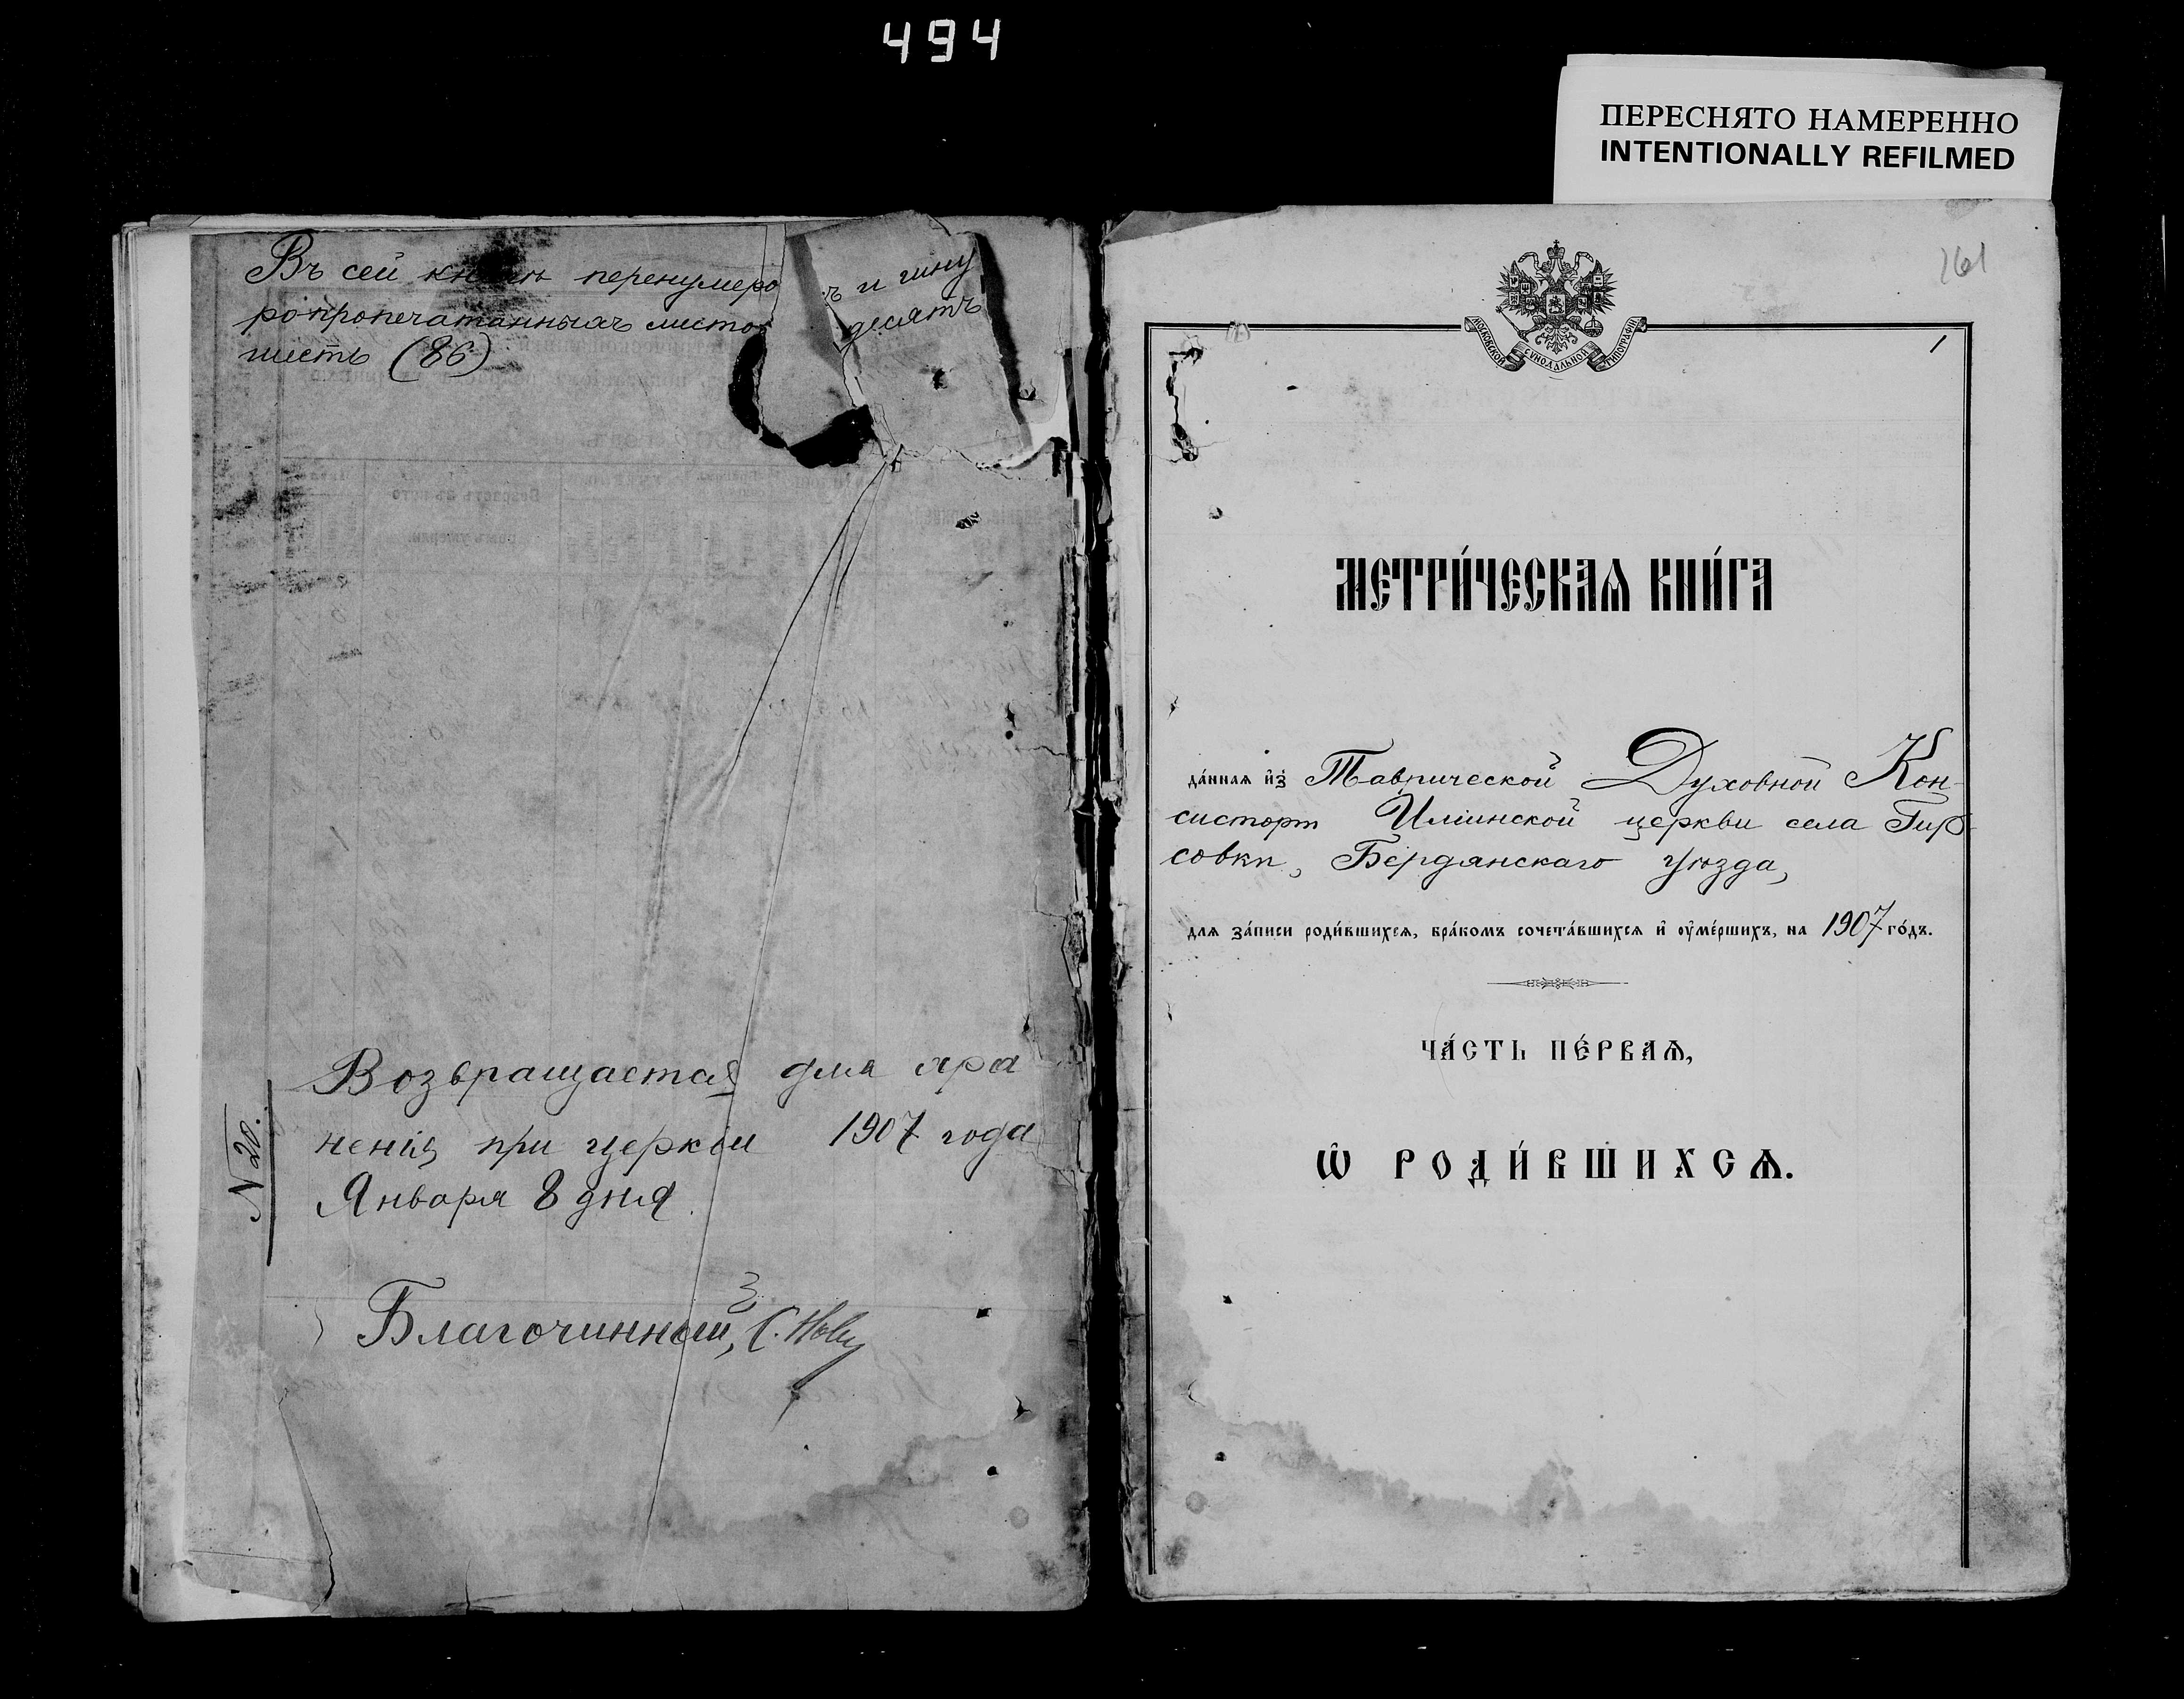 494
ПЕРЕСНЯТО НАМЕРЕННО
INTENTIONALLY REFILMED
Въ сей книгѣ перенумеро ъ и шну
ропропечатанныхъ листо десятъ
шесть (86)
Возвращается для хра
ненія при церкви 1907 года
Января 8 дня
№ 20.
Благочинный, С.
261
1
МОСКОВСКОЙ СѴНОДАЛЬНОЙ ТИПОГРАФІИ
МЕТРИ́ЧЕСКАѦ КНИ́ГА
да́ннаѧ и҆з̾ Таврической Духовной Кон-
систоріи Иліинской церкви села Гир-
совки, Бердянскаго уѣзда,
для за́писи роди́вшихсѧ, бра́комъ сочета́вшихсѧ и҆ ᲂу҆ме́ршихъ, на 1907 го́дъ.
ЧА́СТЬ ПЕ́РВАѦ,
Ѡ҆ РОДИ́ВШИХСѦ.